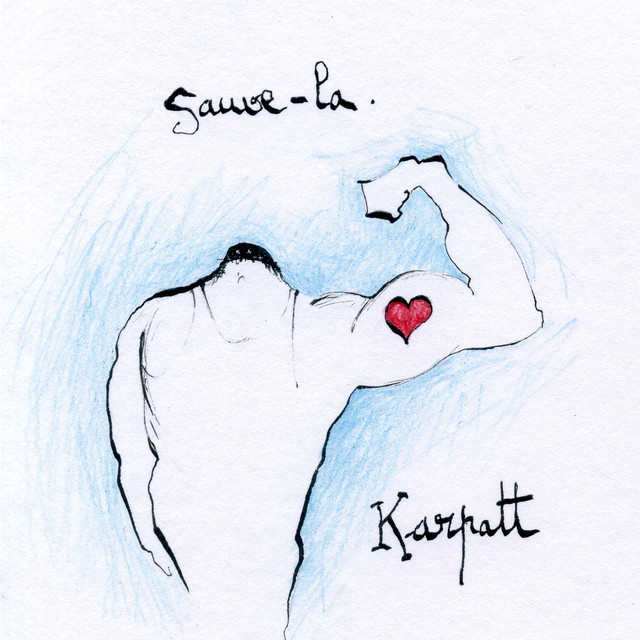 Sauve-la.
Karpatt